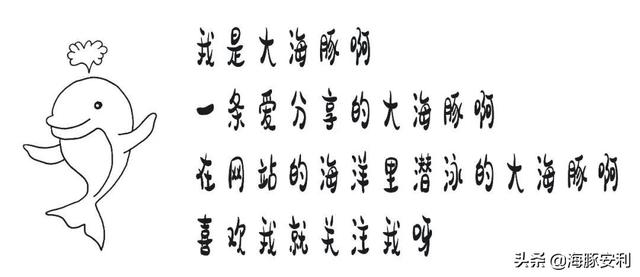 我是大海豚啊
一条爱分享的大海豚啊
在网站的海洋里潜泳的大海豚啊
喜欢我就关注我呀
头条@海豚安利